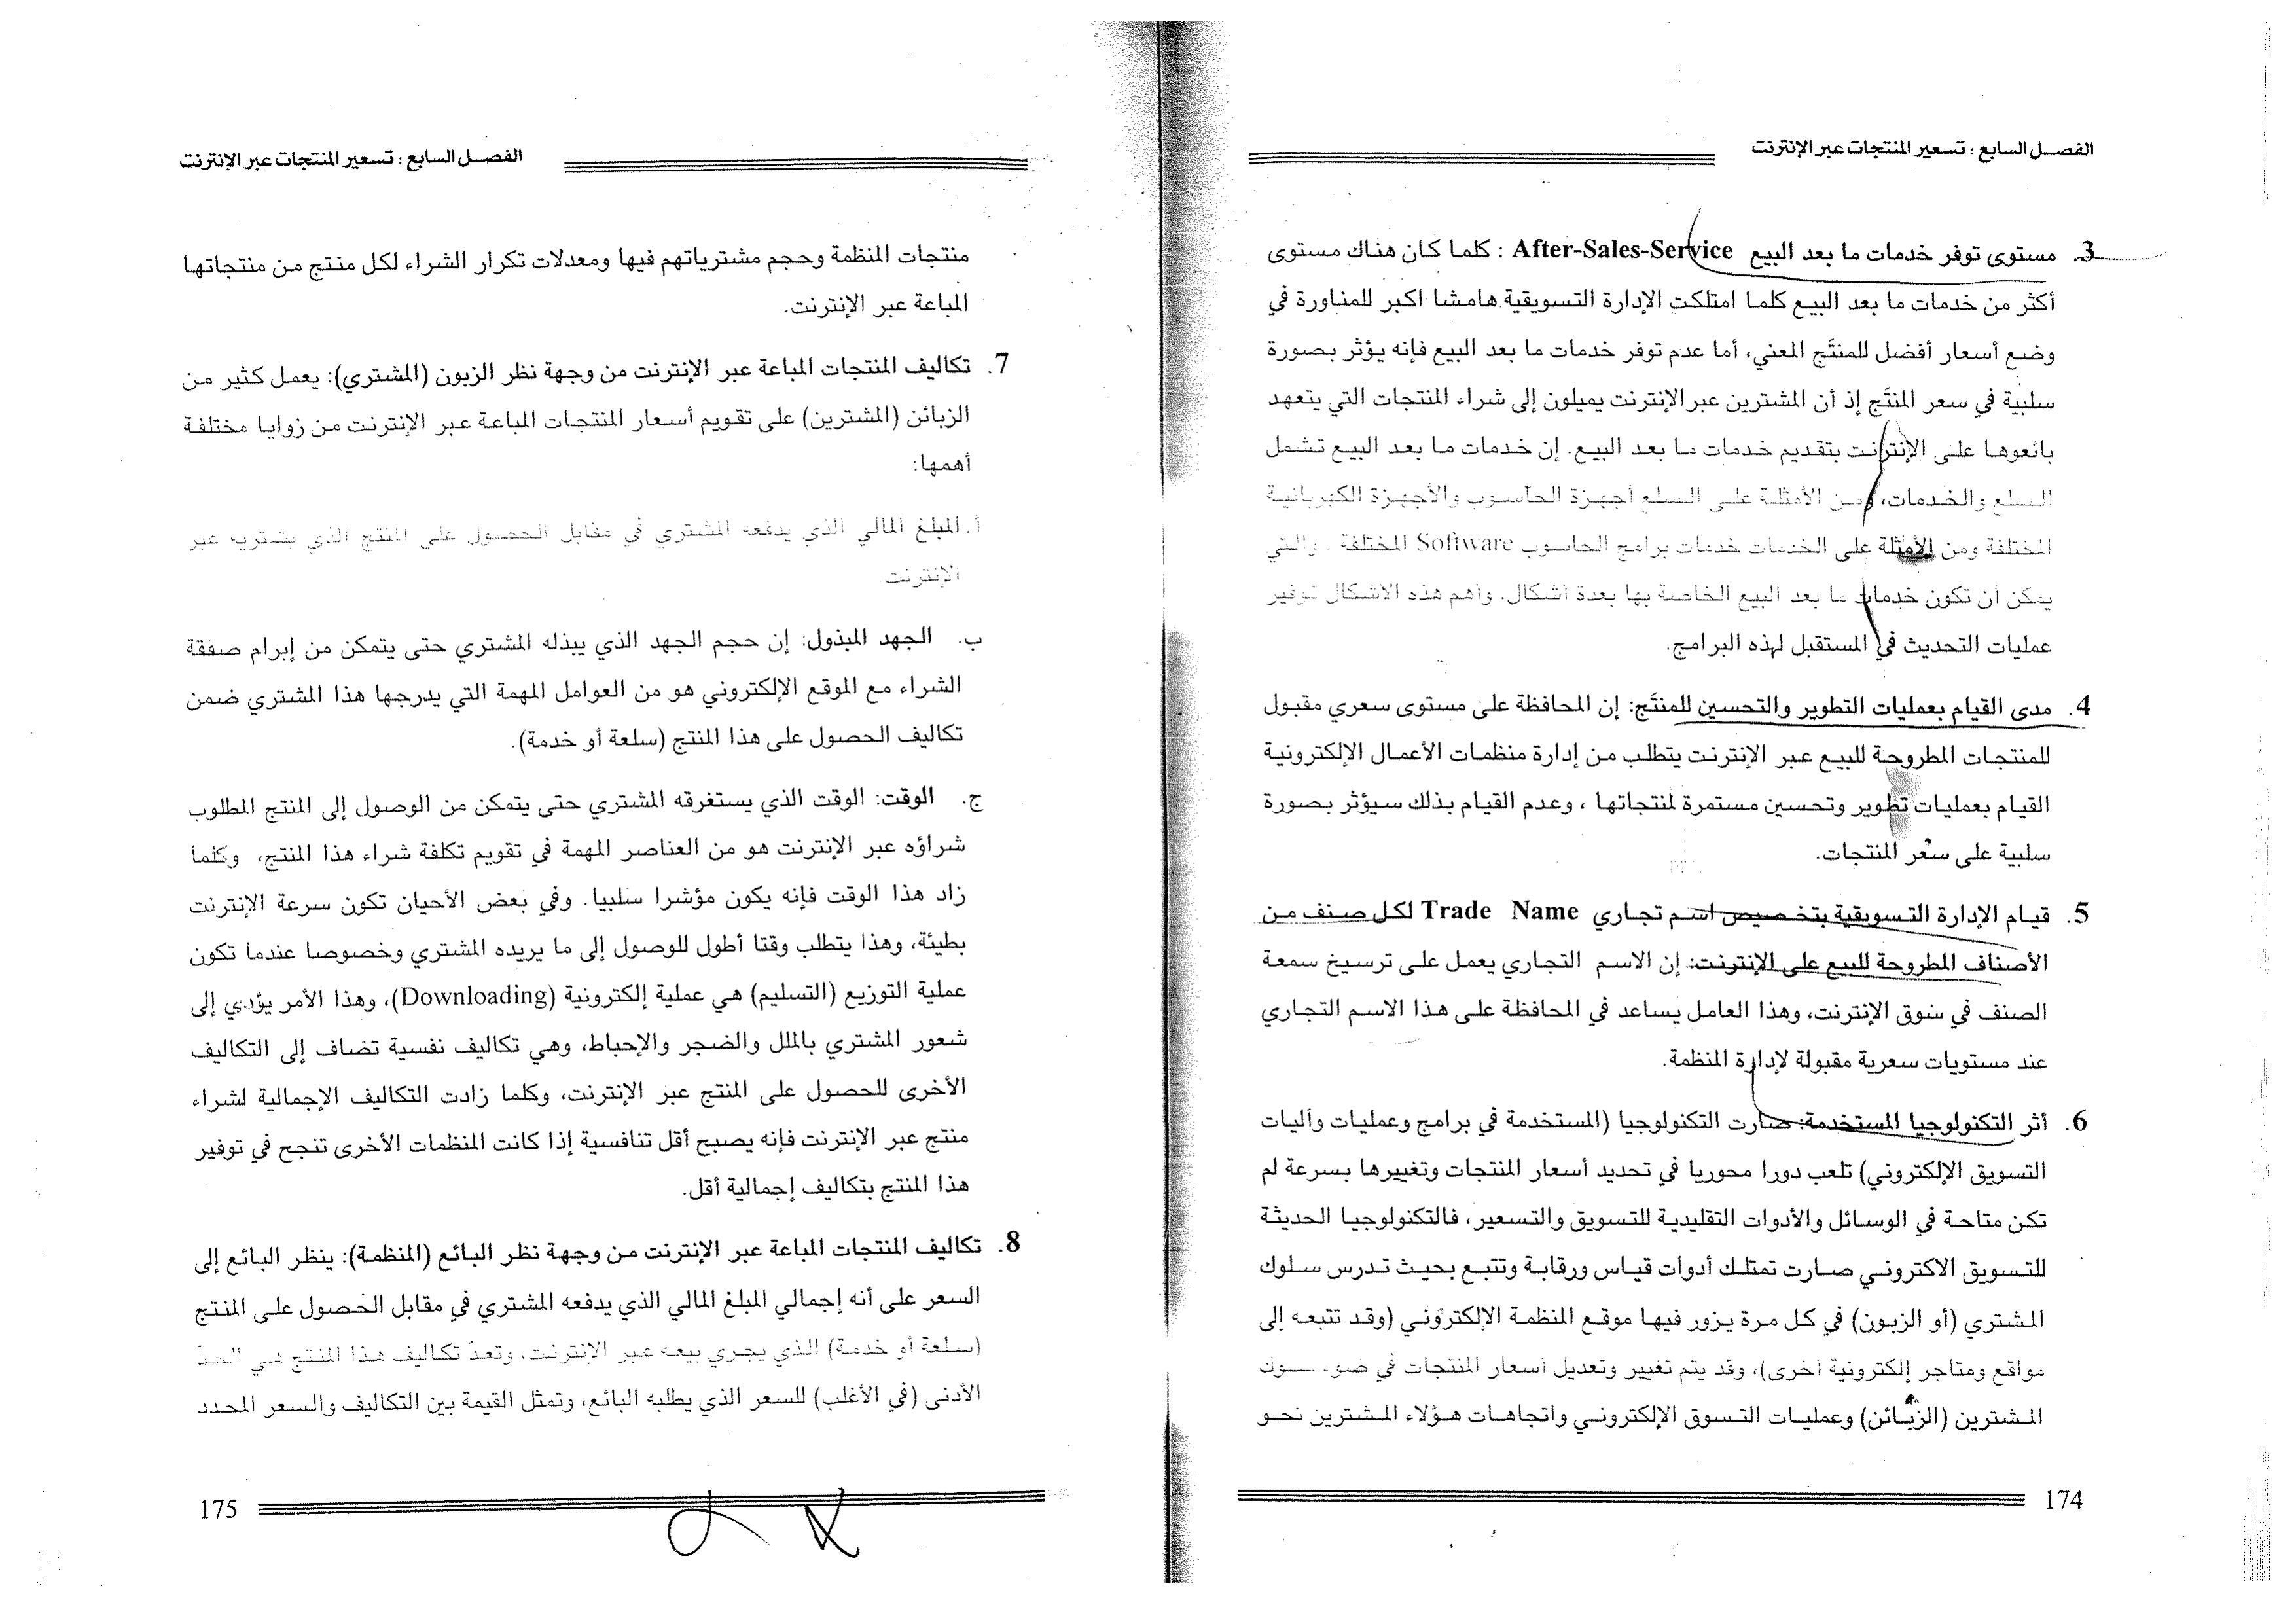 الفصل السابع : تسعير المنتجات عبر الإنترنت
3. مستوى توفر خدمات ما بعد البيع After-Sales-Service : كلما كان هناك مستوى
أكثر من خدمات ما بعد البيع كلما امتلكت الإدارة التسويقية هامشا اكبر للمناورة في
وضع أسعار أفضل للمنتَج المعني، أما عدم توفر خدمات ما بعد البيع فإنه يؤثر بصورة
سلبية في سعر المنتَج إذ أن المشترين عبر الإنترنت يميلون إلى شراء المنتجات التي يتعهد
بائعوها على الإنترنت بتقديم خدمات ما بعد البيع. إن خدمات ما بعد البيع تشمل
السلع والخدمات، ومن الأمثلة على السلع أجهزة الحاسوب والأجهزة الكهربائية
المختلفة ومن الأمثلة على الخدمات خدمات برامج الحاسوب Software المختلفة . والتي
يمكن أن تكون خدمات ما بعد البيع الخاصة بها بعدة أشكال. وأهم هذه الأشكال توفير
عمليات التحديث في المستقبل لهذه البرامج.
4. مدى القيام بعمليات التطوير والتحسين للمنتَج: إن المحافظة على مستوى سعري مقبول
للمنتجات المطروحة للبيع عبر الإنترنت يتطلب من إدارة منظمات الأعمال الإلكترونية
القيام بعمليات تطوير وتحسين مستمرة لمنتجاتها ، وعدم القيام بذلك سيؤثر بصورة
سلبية على سعر المنتجات.
5. قيام الإدارة التسويقية بتخصيص اسم تجاري Trade Name لكل صنف من
الأصناف المطروحة للبيع على الإنترنت: إن الاسم التجاري يعمل على ترسيخ سمعة
الصنف في سوق الإنترنت، وهذا العامل يساعد في المحافظة على هذا الاسم التجاري
عند مستويات سعرية مقبولة لإدارة المنظمة.
6. أثر التكنولوجيا المستخدمة: صارت التكنولوجيا (المستخدمة في برامج وعمليات وآليات
التسويق الإلكتروني) تلعب دورا محوريا في تحديد أسعار المنتجات وتغييرها بسرعة لم
تكن متاحة في الوسائل والأدوات التقليدية للتسويق والتسعير، فالتكنولوجيا الحديثة
للتسويق الاكتروني صارت تمتلك أدوات قياس ورقابة وتتبع بحيث تدرس سلوك
المشتري (أو الزبون) في كل مرة يزور فيها موقع المنظمة الإلكتروني (وقد تتبعه إلى
مواقع ومتاجر إلكترونية أخرى)، وقد يتم تغيير وتعديل أسعار المنتجات في ضوء سلوك
المشترين (الزبائن) وعمليات التسوق الإلكتروني واتجاهات هؤلاء المشترين نحو
174
الفصل السابع : تسعير المنتجات عبر الإنترنت
منتجات المنظمة وحجم مشترياتهم فيها ومعدلات تكرار الشراء لكل منتج من منتجاتها
المباعة عبر الإنترنت.
7. تكاليف المنتجات المباعة عبر الإنترنت من وجهة نظر الزبون (المشتري): يعمل كثير من
الزبائن (المشترين) على تقويم أسعار المنتجات المباعة عبر الإنترنت من زوايا مختلفة
أهمها:
أ. المبلغ المالي الذي يدفعه المشتري في مقابل الحصول على المنتج الذي يشتريه عبر
الإنترنت.
ب. الجهد المبذول: إن حجم الجهد الذي يبذله المشتري حتى يتمكن من إبرام صفقة
الشراء مع الموقع الإلكتروني هو من العوامل المهمة التي يدرجها هذا المشتري ضمن
تكاليف الحصول على هذا المنتج (سلعة أو خدمة).
ج. الوقت: الوقت الذي يستغرقه المشتري حتى يتمكن من الوصول إلى المنتج المطلوب
شراؤه عبر الإنترنت هو من العناصر المهمة في تقويم تكلفة شراء هذا المنتج، وكلما
زاد هذا الوقت فإنه يكون مؤشرا سلبيا. وفي بعض الأحيان تكون سرعة الإنترنت
بطيئة، وهذا يتطلب وقتا أطول للوصول إلى ما يريده المشتري وخصوصا عندما تكون
عملية التوزيع (التسليم) هي عملية إلكترونية (Downloading)، وهذا الأمر يؤدي إلى
شعور المشتري بالملل والضجر والإحباط، وهي تكاليف نفسية تضاف إلى التكاليف
الأخرى للحصول على المنتج عبر الإنترنت، وكلما زادت التكاليف الإجمالية لشراء
منتج عبر الإنترنت فإنه يصبح أقل تنافسية إذا كانت المنظمات الأخرى تنجح في توفير
هذا المنتج بتكاليف إجمالية أقل.
8. تكاليف المنتجات المباعة عبر الإنترنت من وجهة نظر البائع (المنظمة): ينظر البائع إلى
السعر على أنه إجمالي المبلغ المالي الذي يدفعه المشتري في مقابل الحصول على المنتج
(سلعة أو خدمة) الذي يجري بيعه عبر الإنترنت، وتعدّ تكاليف هذا المنتج هي الحدّ
الأدنى (في الأغلب) للسعر الذي يطلبه البائع، وتمثل القيمة بين التكاليف والسعر المحدد
175